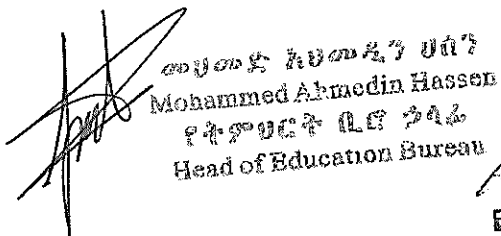 መሀመድ አህመዲን ሀሰን
Mohammed Ahmedin Hassen
የትምህርት ቢሮ ኃላፊ
Head of Education Bureau